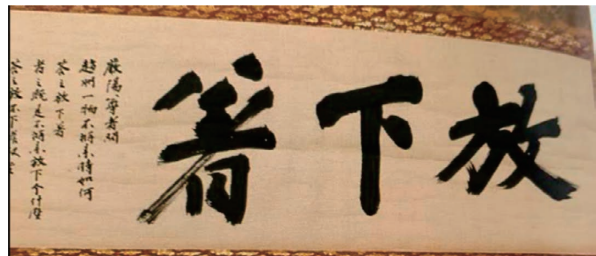 放下着
嚴陽尊者問
趙州一物不將來時如何
答之放下着
者之既是不將來放下个什麼
答之放不下